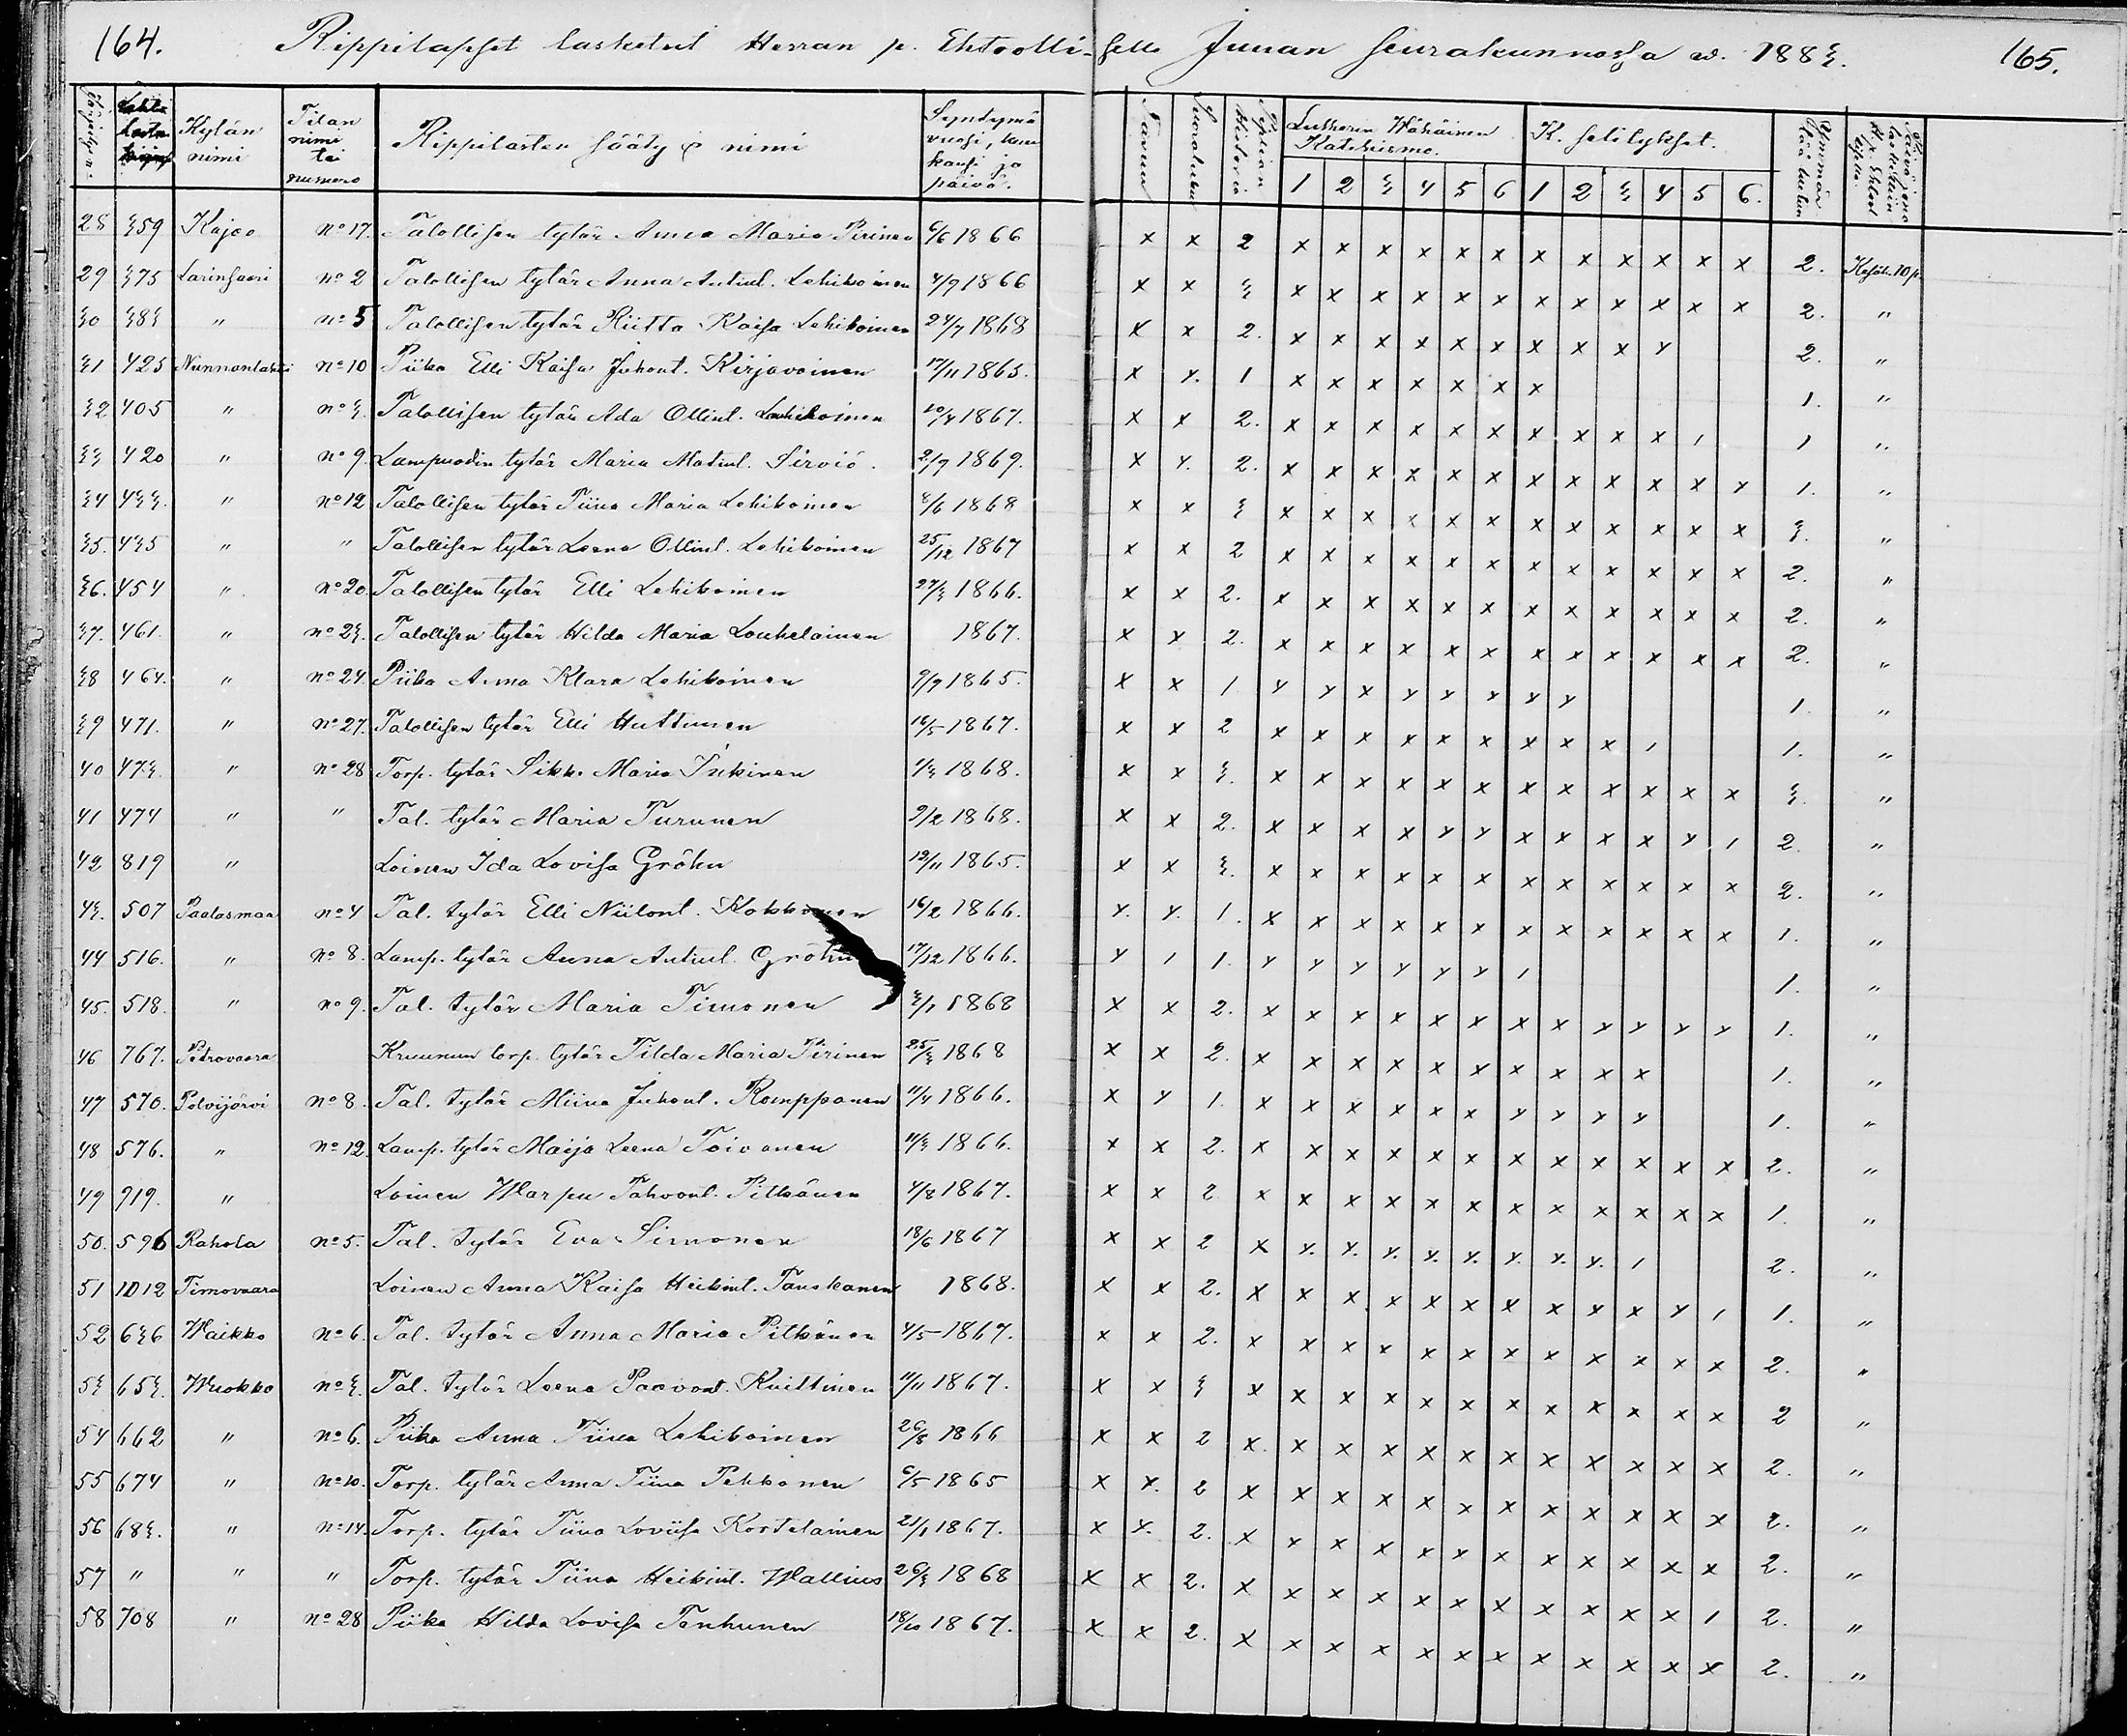 164. Rippilapset lasketut Herran p. Ehtoolli-selle Juuan seurakunnassa w. 1883. 165.
Kylän nimi Tilan nimi tai numero Rippilasten sääty & nimi Syntymä vuosi, kuukausi ja päivä. Lutherin Wähäinen Katekismo. K. selitykset.
1 2 3 4 5 6 1 2 3 4 5 6.
28 359 Kajoo No 17. Talollisen tytär Anna Maria Pirinen 6/6 1866 x x 2 x x x x x x x x x x x x 2. Kesäk. 10 p.
29 375 Larinsaari No 2 Talollisen tytär Anna Antint. Lehikoinen 4/9 1866 x x 3 x x x x x x x x x x x x 2. "
30 383 " No 5 Talollisen tytär Riitta Kaisa Lehikoinen 24/7 1868 x x 2. x x x x x x x x x x 2. "
31 425 Nunnanlahti No 10 Piika Elli Kaisa Juhont. Kirjavainen 17/11 1865. x x. 1 x x x x x x x 1. "
32 405 " No 3. Talollisen tytär Ada Ollint. Lehikoinen 20/4 1867. x x 2. x x x x x x x x x x 1 1 "
33 420 " No 9. Lampuodin tytär Maria Matint. Sirviö. 2/9 1869. x x. 2. x x x x x x x x x x x x 1. "
34 433. " No 12 Talollisen tytär Tiina Maria Lehikoinen 8/6 1868 x x 3 x x x x x x x x x x x x 3. "
35. 435 " " Talollisen tytär Leena Ollint. Lehikoinen 25/12 1867 x x 2 x x x x x x x x x x x x 2. "
36. 454 " No 20. Talollisen tytär Elli Lehikoinen 27/3 1866. x x 2. x x x x x x x x x x x x 2. "
37. 461. " No 23. Talollisen tytär Hilda Maria Louhelainen 1867. x x 2. x x x x x x x x x x x x 2. "
38 464. " No 24. Piika Anna Klara Lehikoinen 9/9 1865. x x 1 x x x x x x x x 1. "
39 471. " No 27. Talollisen tytär Elli Huttunen 16/5 1867. x x 2 x x x x x x x x x 1 1. "
40 473. " No 28 Torp. tytär Sikk. Maria Inkinen 1/3 1868. x x 3. x x x x x x x x x x x x 3. "
41 474 " " Tal. tytär Maria Turunen 2/2 1868. x x 2. x x x x x x x x x x x 1 2. "
42 819 " Loinen Ida Lovisa Gröhn 12/11 1865. x x 3. x x x x x x x x x x x x 2. "
43. 507 Paalasmaa No 4 Tal. tytär Elli Niilont. Kokkonen 16/2 1866. x. x. 1. x x x x x x x x x x x x 1. "
44 516. " No 8. Lamp. tytär Anna Antint. Gröhn 17/12 1866. x 1 1. x x x x x x 1 1. "
45. 518. " No 9. Tal. tytär Maria Timonen 3/1 1868 x x 2. x x x x x x x x x x x x 1. "
46 767. Petrovaara Kruunun torp. tytär Tilda Maria Pirinen 25/3 1868 x x 2. x x x x x x x x x x 1. "
47 570. Polvijärvi No 8. Tal. tytär Miina Juhont. Romppanen 11/4 1866. x x 1. x x x x x x x x x x 1. "
48 576. " No 12. Lamp. tytär Maija Leena Toivanen 11/3 1866. x x 2. x x x x x x x x x x x x 2. "
49 919. " Loinen Warpu Tahvont. Pitkänen 4/8 1867. x x 2 x x x x x x x x x x x x 1. "
50. 596 Rahola No 5. Tal. tytär Eva Simonen 18/6 1867 x x 2 x x. x. x. x. x. x. x. x. 1 2. "
51 1012 Timovaara Loinen Anna Kaisa Heikint. Tanskanen 1868. x x 2. x x x x x x x x x x x 1 1. "
52 636 Waikko No 6. Tal. tytär Anna Maria Pitkänen 4/5 1867. x x 2. x x x x x x x x x x x x 2. "
53 653. Wuokko No 3. Tal. tytär Leena Paavont. Kuittinen 11/11 1867. x x 3 x x x x x x x x x x x x 2 "
54 662 " No 6. Piika Anna Tiina Lehikoinen 26/8 1866 x x 2 x. x x x x x x x x x x x 2. "
55 674 " No 10. Torp. tytär Anna Tiina Pekkonen 6/5 1865 x x. 2 x x x x x x x x x x x x 2. "
56 683. " No 14. Torp. tytär Tiina Loviisa Kortelainen 21/1 1867. x x. 2. x x x x x x x x x x x x 2. "
57 " " " Torp. tytär Tiina Heikint. Wallius 26/3 1868 x x 2. x x x x x x x x x x x 1 2. "
58 708 " No 28 Piika Hilda Lovisa Tenhunen 18/10 1867. x x 2. x x x x x x x x x x x x 2. "